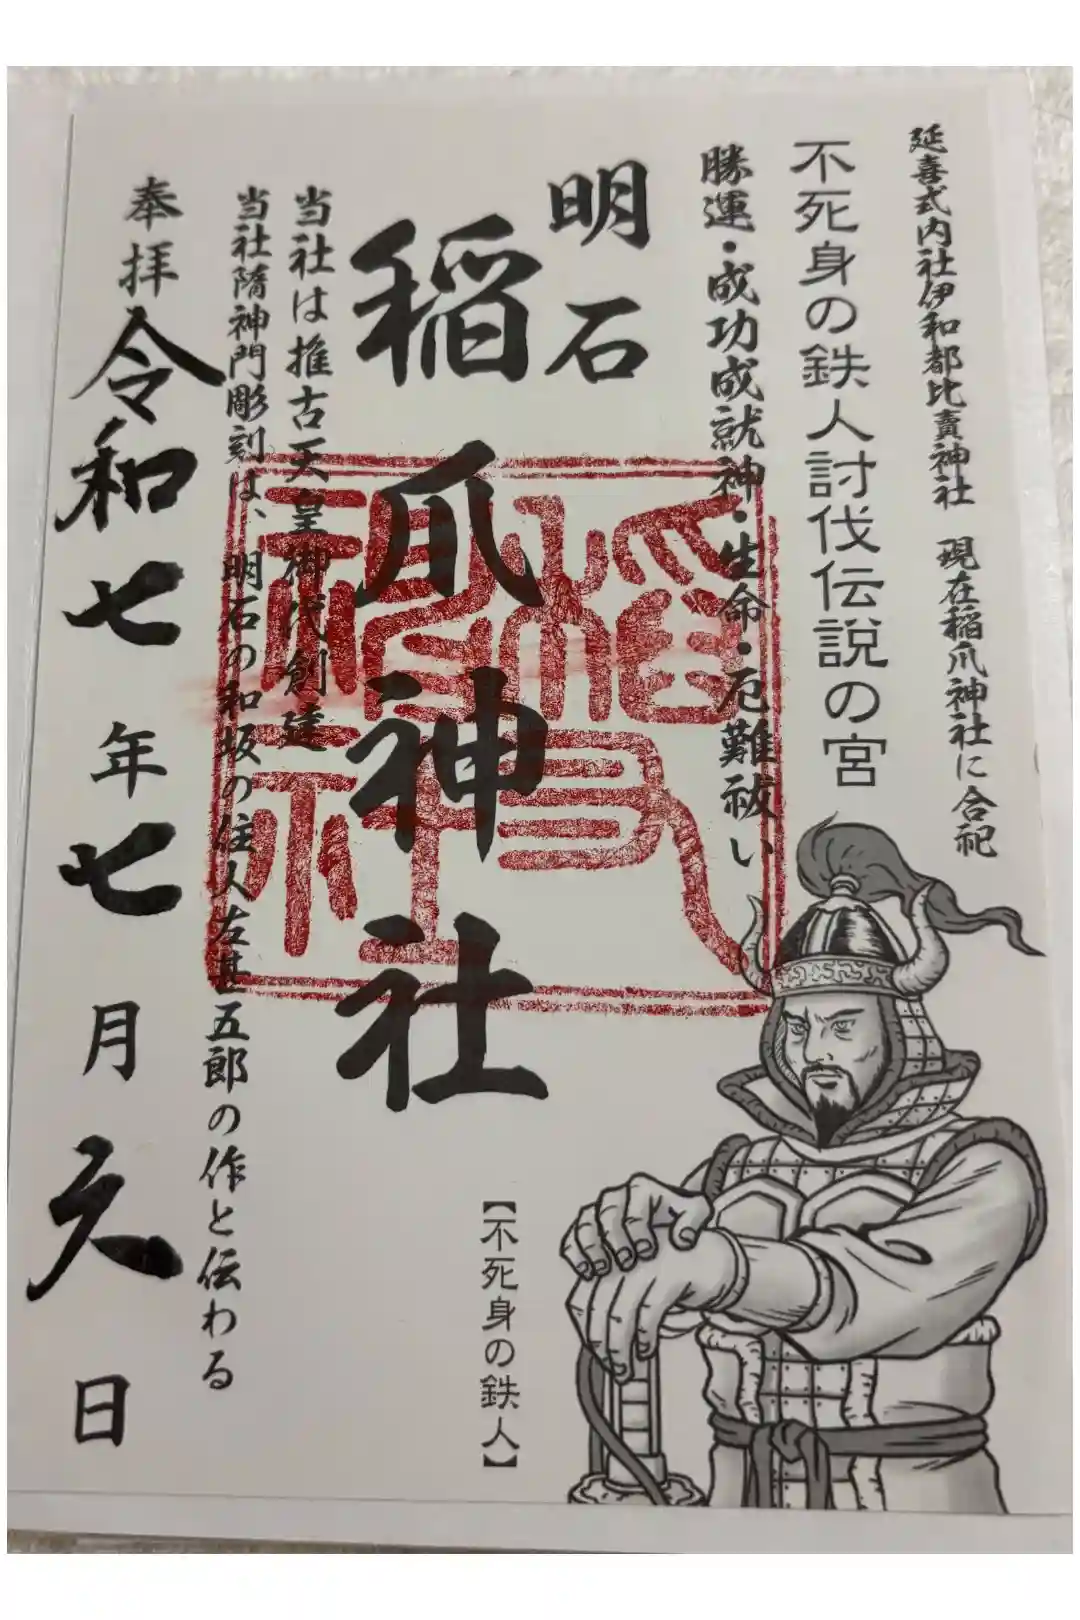 延喜式内社伊和都比賣神社 現在稲爪神社に合祀
不死身の鉄人討伐伝説の宮
勝運・成功成就神・生命・厄難祓い
明石
稲爪神社
当社は推古天皇御代創建
当社隋神門彫刻は、明石の和坂の住人左甚五郎の作と伝わる
奉拝
令和七年七月 日
【不死身の鉄人】
稲爪神社